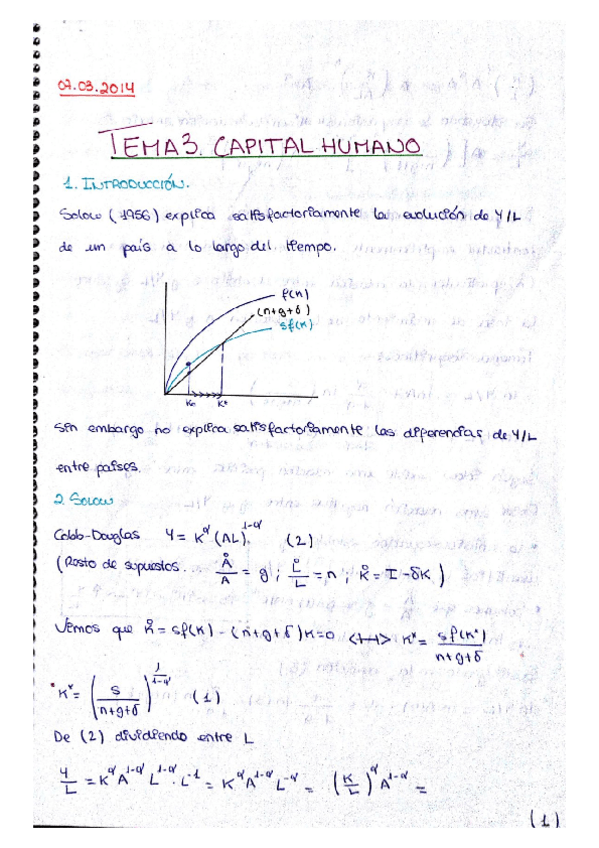 07.03.2014
TEMA 3. CAPITAL HUMANO
1. INTRODUCCIÓN.
Solow (1956) explica satisfactoriamente la evolución de Y/L
de un país a lo largo del tiempo.
f(k)
(n+g+δ)
sf(k)
K₀ K*
Sin embargo no explica satisfactoriamente las diferencias de Y/L
entre países.
2 Solow
Cobb-Douglas Y = K^α (AL)^1-α (2)
(Resto de supuestos Å/A = g ; L̊/L = n ; K̊ = I - δK )
Vemos que k̊ = sf(k) - (n+g+δ)k = 0 <+++> k* = sf(k*)/n+g+δ
k* = (s/n+g+δ)^1/1-α (1)
De (2) dividiendo entre L
Y/L = K^α A^1-α L^1-α · L^-1 = K^α A^1-α L^-α = (K/L)^α A^1-α =
(1)